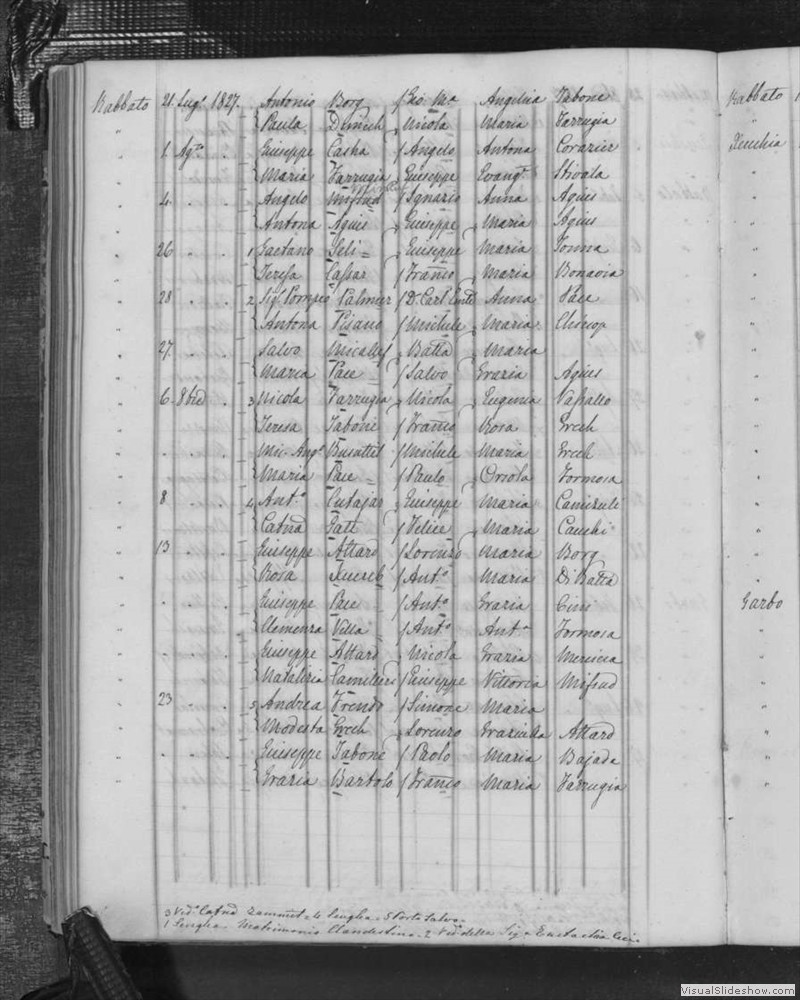 Rabbato 21. Lug.o 1827. Antonio Borg / Gio. Ma Angelica Tabone
" Paula Dimech Nicola Maria Farrugia
" 1. Ag.to Giuseppe Casha / Angelo Antona
" Maria Farrugia Giuseppe Evang.a
" 4. Angelo Mifsud / Ignazio Anna Agius
" Antona Agius Giuseppe Maria Agius
" 26 1 Gaetano Seli Giuseppe Maria Tonna
" Teresa Cassar / Franco Maria Bonavia
" 28 2 Sig. Pompeo Palmier / Anna Pace
" Antona Pisano / Michele Maria
" 27. Salvo Micallef Batta Maria
" Maria Pace / Salvo Grazia Agius
" 6. 8bre 3 Nicola Farrugia Nicola Eugenia Vassallo
" Teresa Tabone / Franco Rosa Grech
" Mic. Ang.o Busuttil / Michele Maria Grech
" Maria Pace / Paulo Orsola Formosa
" 8 4 Ant.o Cutajar Giuseppe Maria Camilleri
" Catna Gatt / Felice Maria Cauchi
" 13 Giuseppe Attard / Lorenzo Maria Borg
" Rosa Xuereb / Ant.o Maria Di Batta
" Giuseppe Pace / Ant.o Grazia Cini
" Clemenza Villa / Ant.o Ant.a Formosa
" Giuseppe Attard Nicola Grazia Mercieca
" Natalizia Camilleri / Giuseppe Vittoria Mifsud
" 23 5 Andrea Trends / Simone Maria
" Modesta Grech Lorenzo Graziella Attard
" Giuseppe Tabone / Paolo Maria Bajada
" Grazia Bartolo / Franco Maria Farrugia
3 Ved.o Catna Zammit - 4 Senglea - 5 Porto Salvo.
1 Senglea. Matrimonio Clandestino - 2 Ved. della Sig.a
Rabbato
"
Xeuchia
Garbo
VisualSlideshow.com